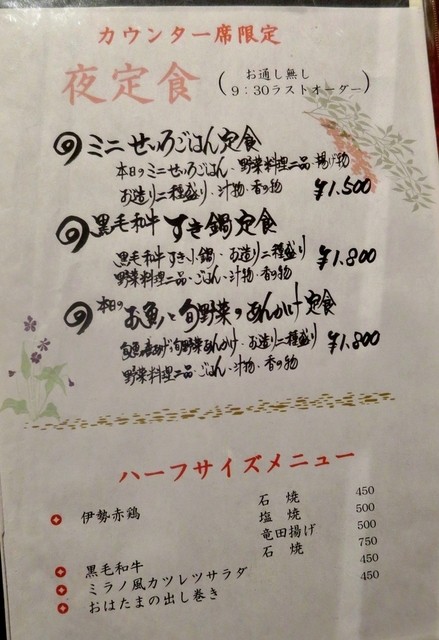 カウンター席限定
夜定食
(お通し無し
9:30ラストオーダー)
ミニせいろごはん定食
本日のミニせいろごはん・野菜料理二品・揚げ物
お造り二種盛り・汁物・香の物
¥1,500
黒毛和牛 すき鍋定食
黒毛和牛すき小鍋・お造り二種盛り
野菜料理二品・ごはん・汁物・香の物
¥1,800
本日の お魚と旬野菜のあんかけ定食
旬野菜あんかけ・お造り二種盛り
野菜料理二品・ごはん・汁物・香の物
¥1,800
ハーフサイズメニュー
伊勢赤鶏 石焼 450
塩焼 500
竜田揚げ 500
黒毛和牛 石焼 750
ミラノ風カツレツサラダ 450
おはたまの出し巻き 450